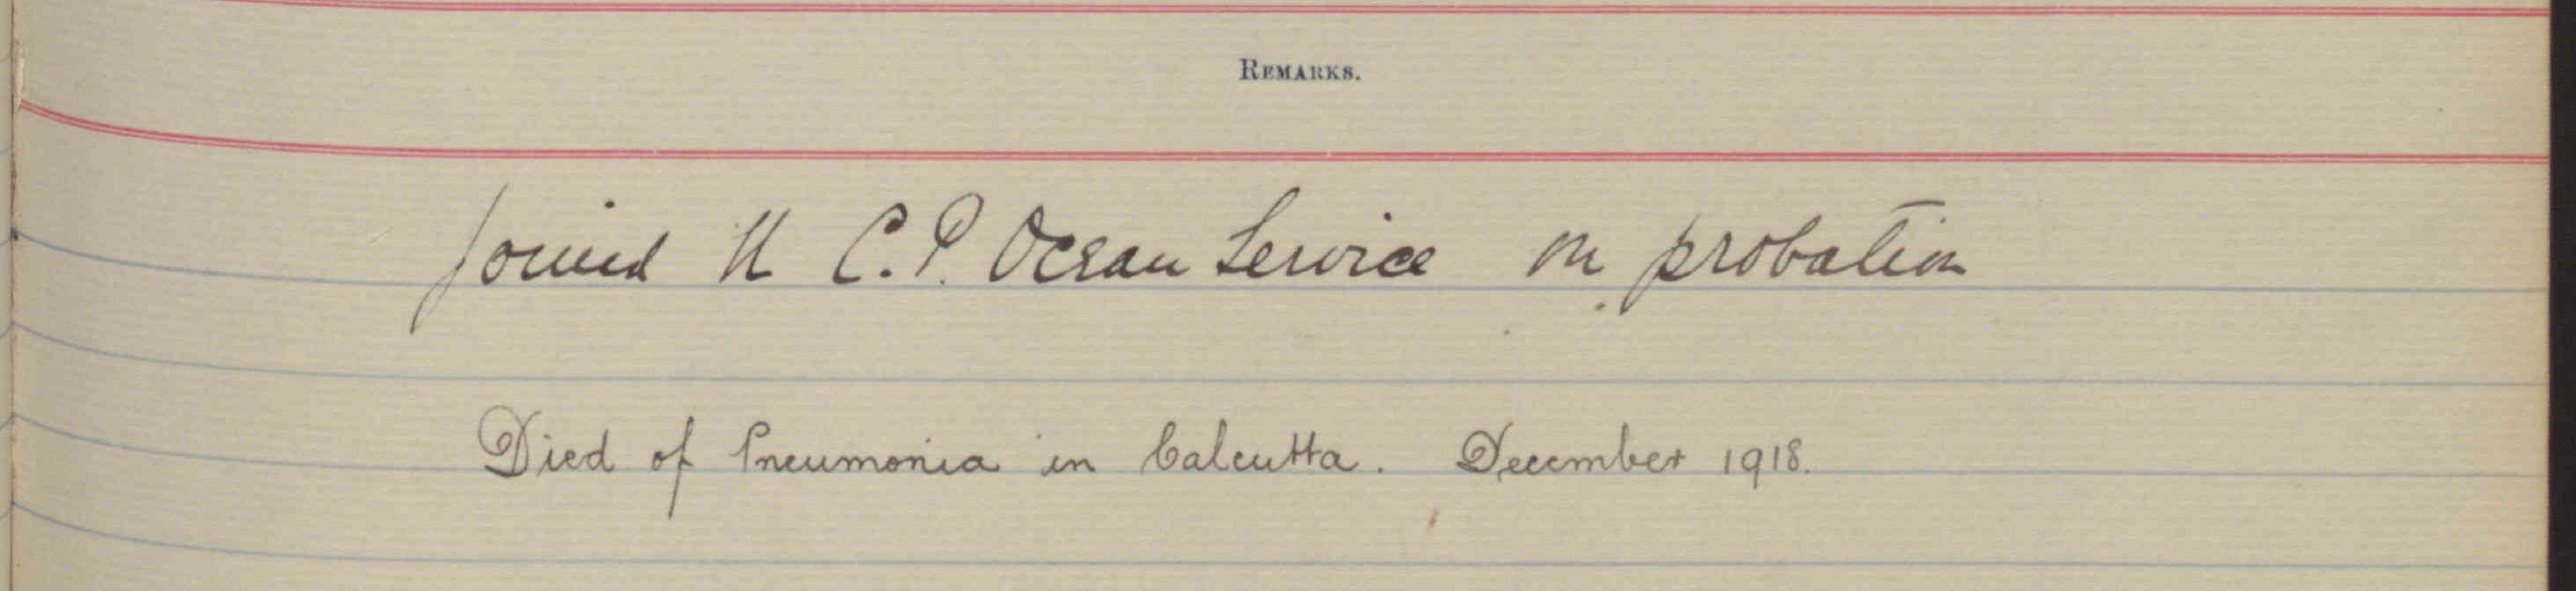 REMARKS.
Joined C.P. Ocean Service on probation
Died of Pneumonia in Calcutta. December 1918.